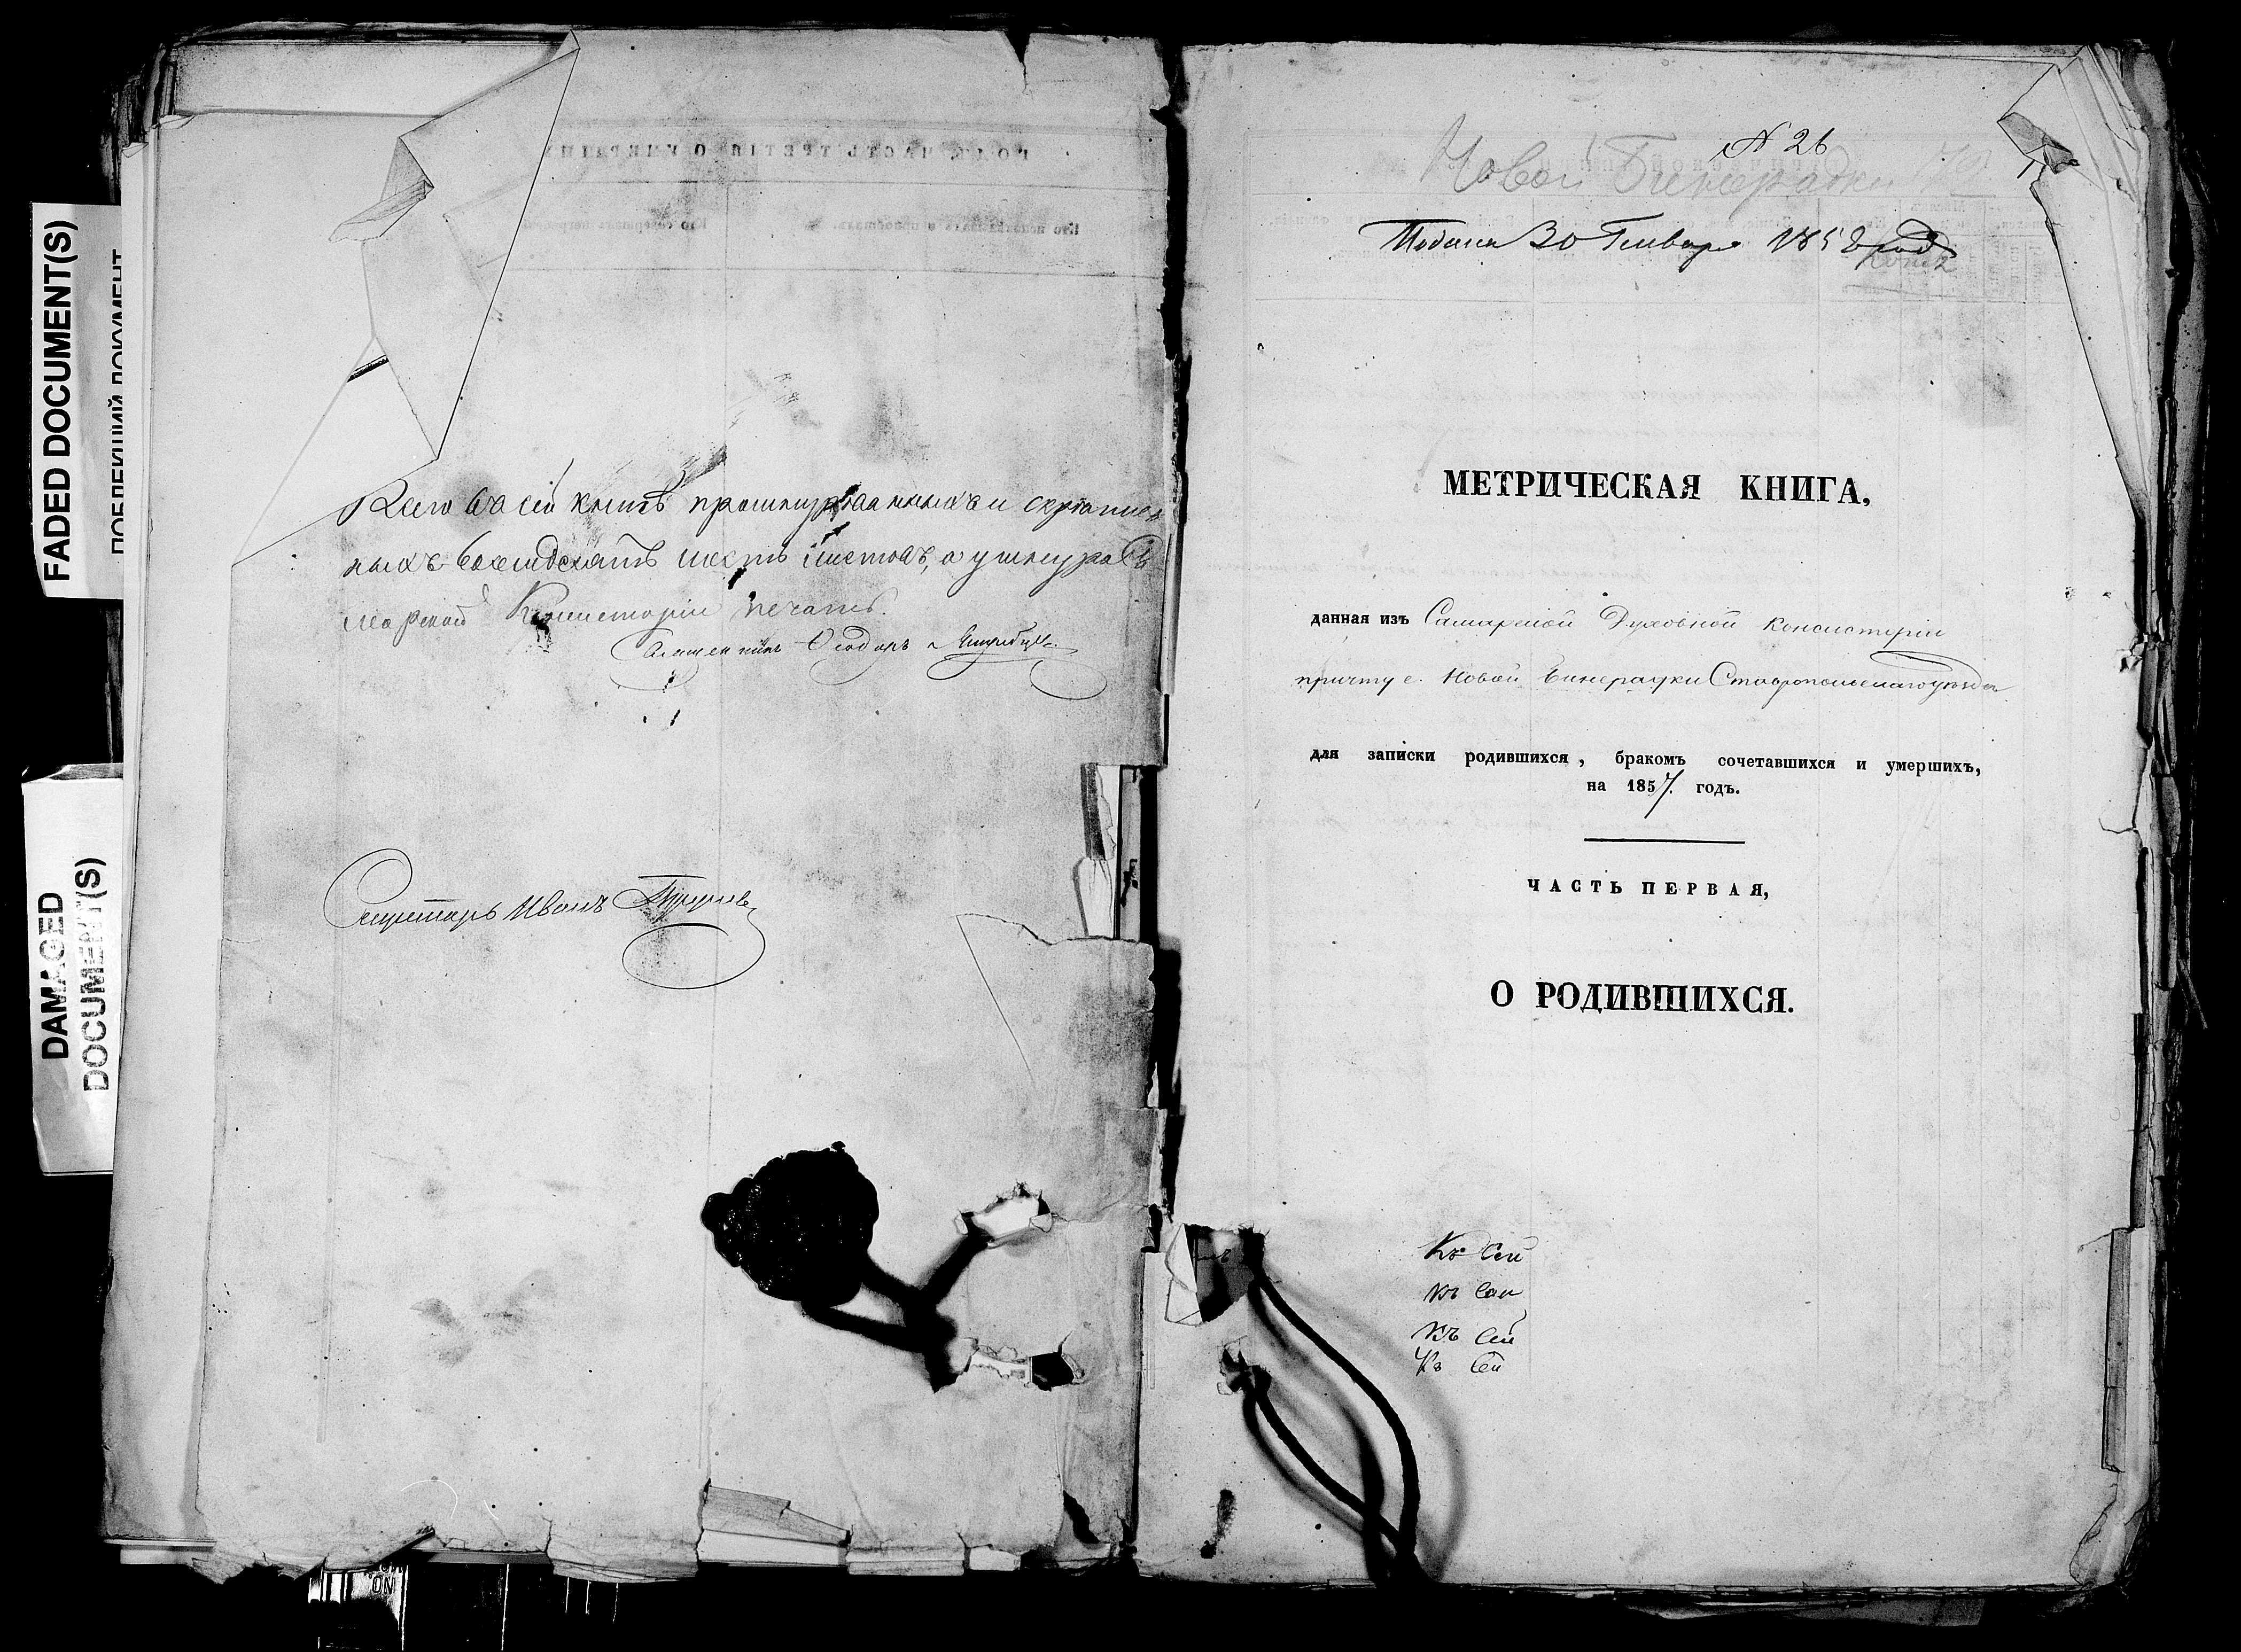 FADED DOCUMENT(S)
DAMAGED
DOCUMENT(S)
Всего въ сей книгѣ прошнурованныхъ и скрѣплен
ныхъ восемдесятъ шесть листовъ, а у шнура Са
марской Консисторіи печать.
Священникъ Ѳеодоръ
Секретарь Иванъ
№ 26
Новой Бинерадки
Подана 30 Генваря 1858 года
Копія
МЕТРИЧЕСКАЯ КНИГА,
данная изъ Самарской Духовной Консисторіи
причту с. Новой Бинерадки Ставропольскаго уѣзда
для записки родившихся, бракомъ сочетавшихся и умершихъ,
на 1857. годъ.
ЧАСТЬ ПЕРВАЯ,
О РОДИВШИХСЯ.
Къ Сей
Къ Сей
Къ Сей
Къ Сей